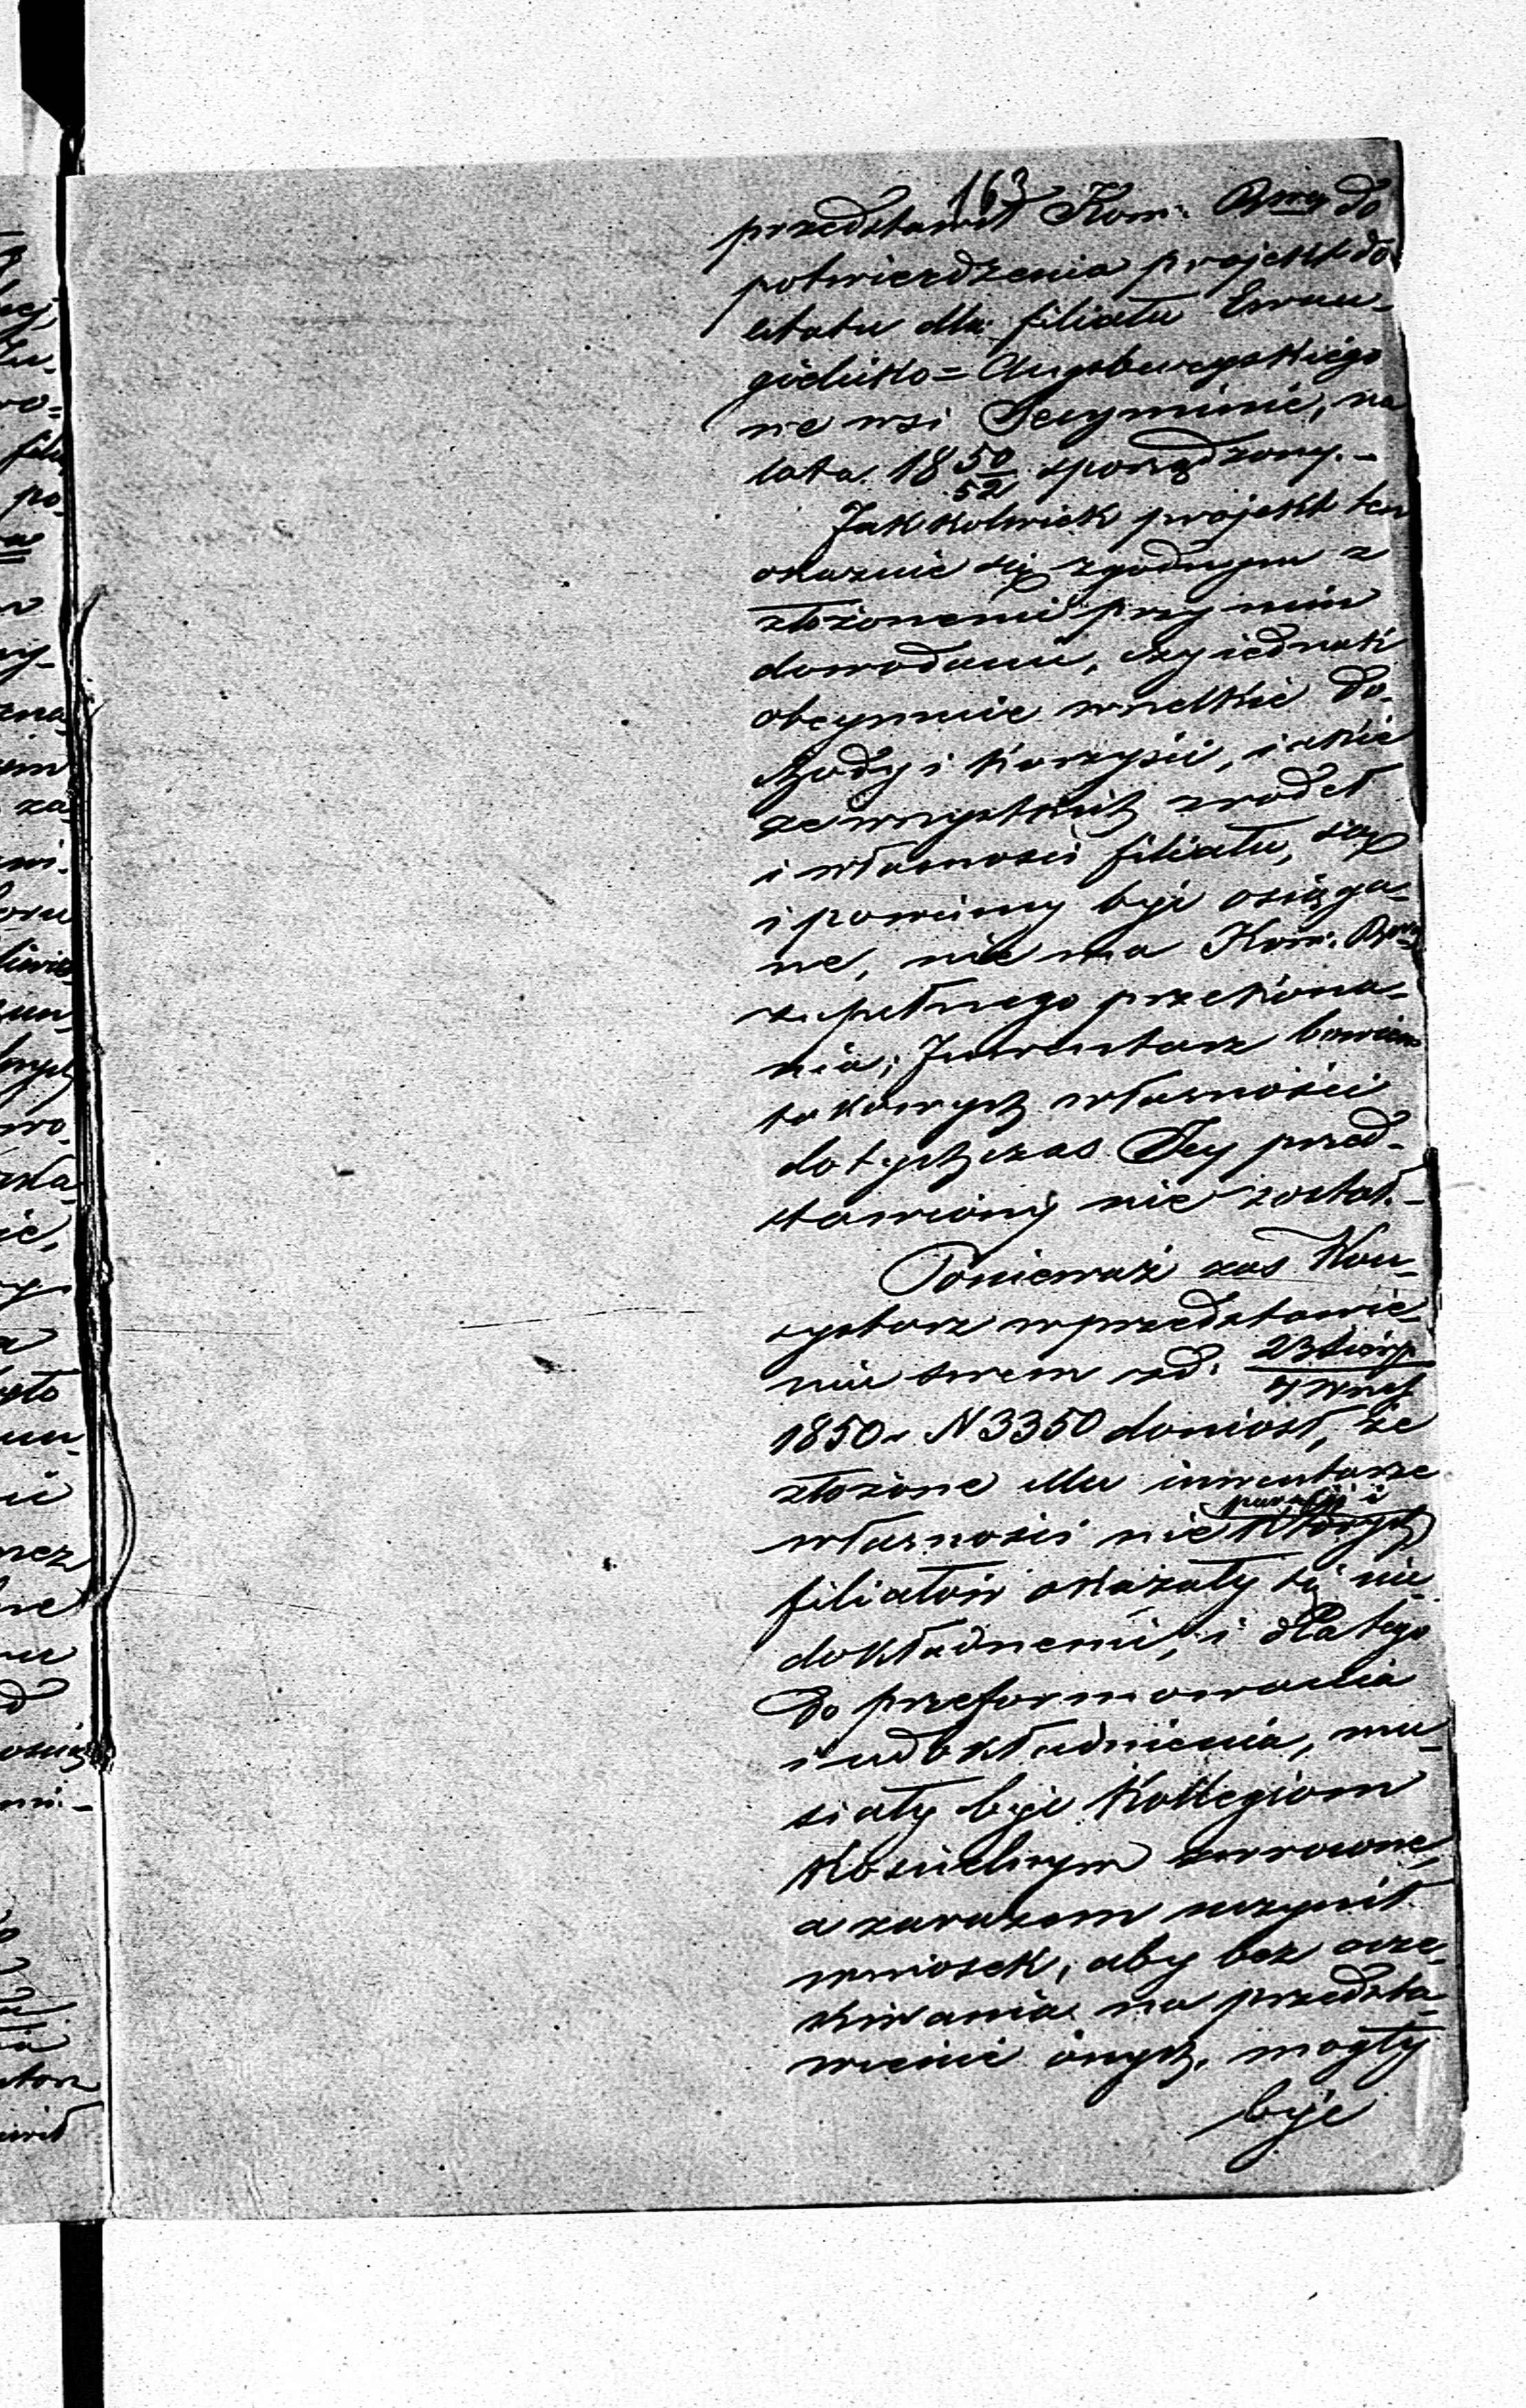 163
przedstawił Kom: Rząg do
potwierdzenia projekt do
etatu dla filiału Ewan-
gielicko=Augsburgskiego
we wsi Secyminie, na
lata 18 50/52 sporządzony.-
Jakkolwiek projekt ten
okazuie się zgodnym z
złożonemi przy nim
dowodami, czy iednak
obeymuie wszelkie do-
chody i korzyści, iakie
ze wszystkich zrodeł
i własności filiału, są
i powinny być osiąga-
ne, nie ma Kom:
zupełnego przekona-
nia; Inwentarz bowiem
takowych własności
dotychczas Jey przed-
stawiony nie został.-
Ponieważ zas Kon-
systorz w przedstawie-
niu swem z d: 23 sierp/4 wrześ
1850 N 3350 doniosł, że
złożone Mu inwentarze
parafii i
własności niektorych
filiałow okazały się nie-
dokładnemi, i dla tego
do przeformowania
i udokładnienia, mu-
siały być Kollegiom
Kościelnym zwrocone,
a zarazem uczynił
wniosek, aby bez ocze-
kiwania na przedsta-
wienie onych, mogły
być
ny-
zna
om
za
wi.
po-
ro=
je,
nez